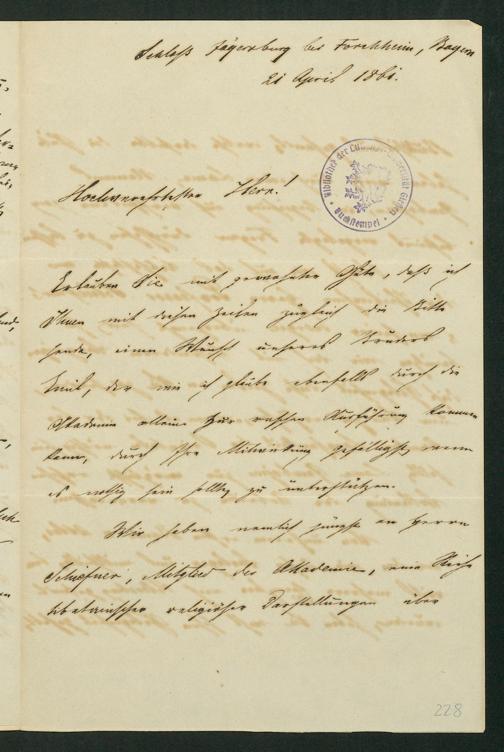 Schloß Jägersburg bei Forchheim, Bayern
21 April 1861.
Bibliothek der Ludwigs-Universität Gießen
Buchstempel
Hochverehrtester Herr!
Erlauben Sie mit gewohnter Güte, daß ich
Ihnen mit diesen Zeilen zugleich die Bitte
sende, einen Wunsch unseres Bruders
Emil, der wie ich glaube ebenfalls durch die
Akademie alleine zur raschen Ausführung kommen
kann, durch Ihre Mitwirkung gefälligst, wenn
es nothig sein sollte, zu unterstützen.
Wir haben nemlich jüngst an Herrn
Schiefner, Mitglied der Akademie, eine Reihe
tibetanischer religiöser Darstellungen über
228